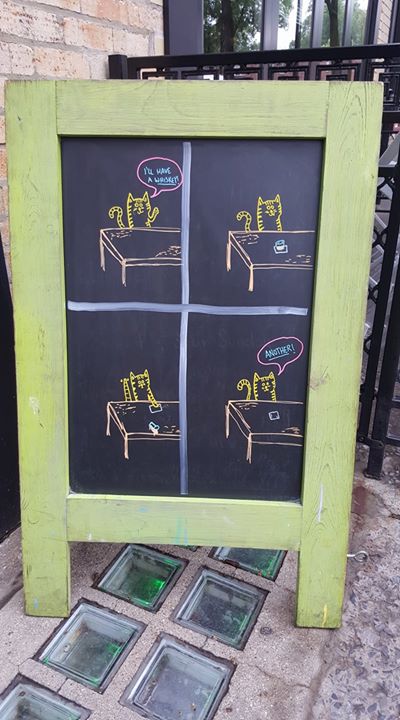 I'LL HAVE
A WHISKEY!
ANOTHER!